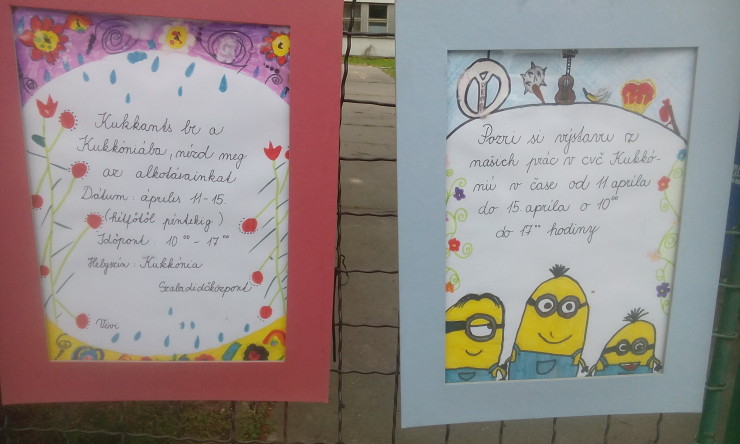 Kukkants be a
Kukkóniába, nézd meg
az alkotásainkat
Dátum: április 11-15.
(hétfőtől péntekig)
Időpont: 10⁰⁰ - 17⁰⁰
Helyszín: Kukkónia
Szabadidőközpont
Vivi
Pozri si výstavu z
našich prác v cvč Kukkó-
nii v čase od 11 apríla
do 15. apríla o 10⁰⁰
do 17⁰⁰ hodiny